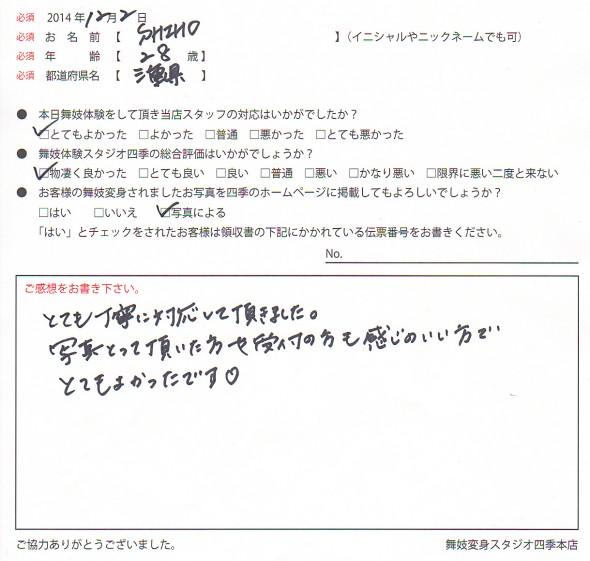 必須 2014年12月2日
必須 お名前【 SHIHO 】(イニシャルやニックネームでも可)
必須 年齢【 28 歳】
必須 都道府県名【 三重県 】
● 本日舞妓体験をして頂き当店スタッフの対応はいかがでしたか?
☑とてもよかった □よかった □普通 □悪かった □とても悪かった
● 舞妓体験スタジオ四季の総合評価はいかがでしょうか?
☑物凄く良かった □とても良い □良い □普通 □悪い □かなり悪い □限界に悪い二度と来ない
● お客様の舞妓変身されましたお写真を四季のホームページに掲載してもよろしいでしょうか?
□はい □いいえ ☑写真による
「はい」とチェックをされたお客様は領収書の下記にかかれている伝票番号をお書きください。
No.
ご感想をお書き下さい。
とても丁寧に対応して頂きました。
写真とって頂いた方や受付の方も感じのいい方で
とてもよかったです♡
ご協力ありがとうございました。 舞妓変身スタジオ四季本店